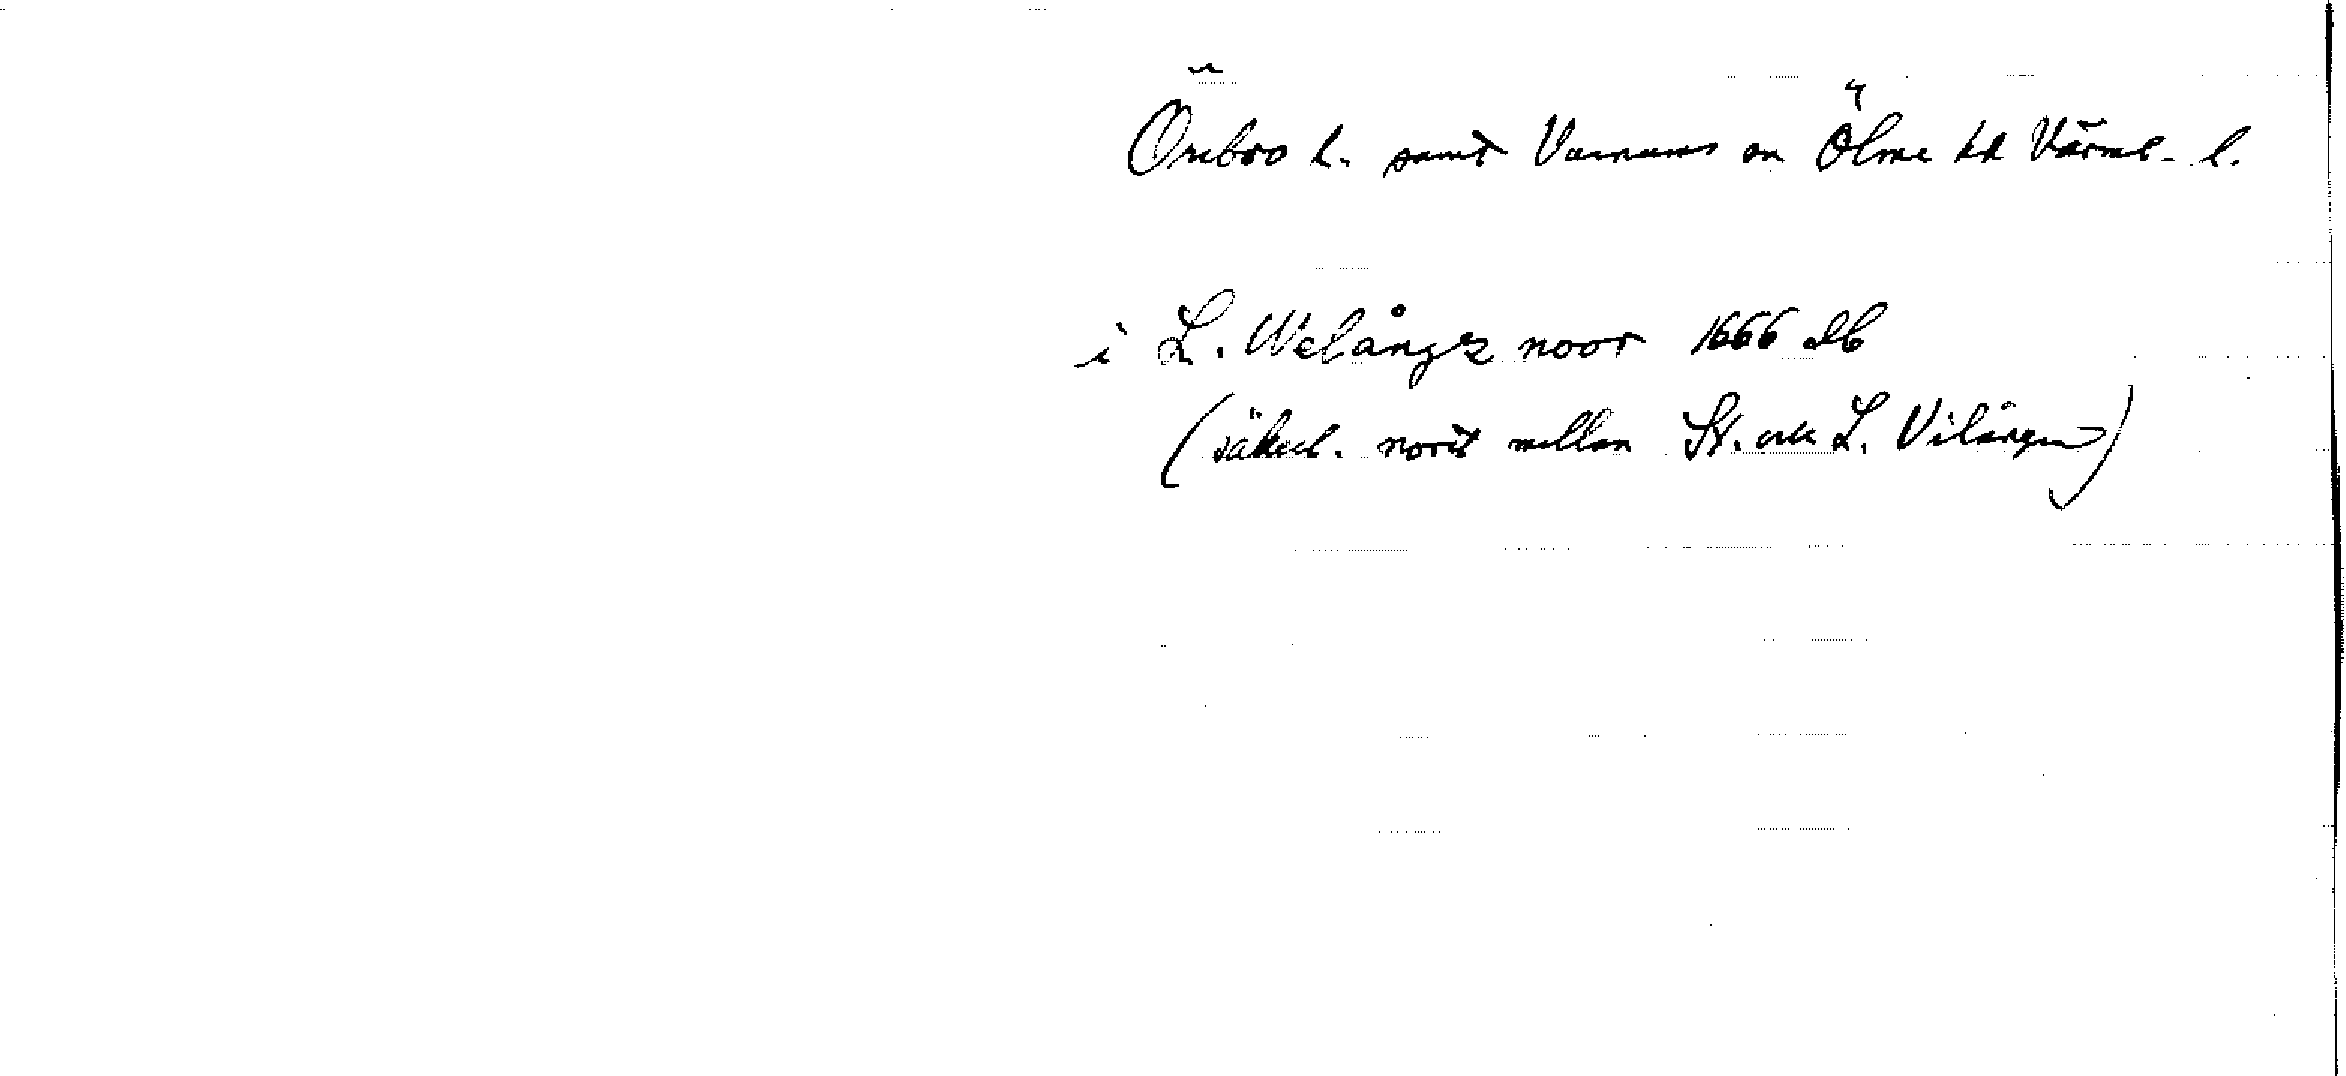 Örebro l. samt Varnums o Ölme hd Värml. l.
i L. Welångz noor 1666 db
(säkerl. norit mellan St. och L. Vilången)